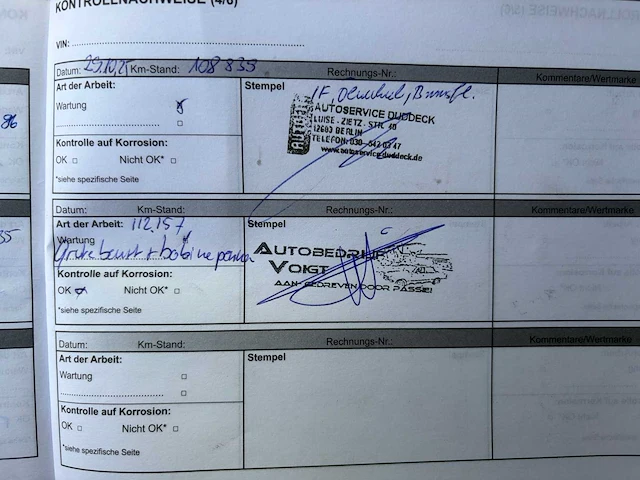 KONTROLLNACHWEISE (4/6)
VIN:
Datum: 29.10.25 Km-Stand: 108 835 Rechnungs-Nr.: Kommentare/Wertmarke
Art der Arbeit:
Wartung
Kontrolle auf Korrosion:
OK Nicht OK*
*siehe spezifische Seite
Stempel
AUTOSERVICE DUDDECK
LUISE - ZIETZ - STR. 40
12683 BERLIN
TELEFON: 030 -
www.autoservice-duddeck.de
Datum: Km-Stand: Rechnungs-Nr.: Kommentare/Wertmarke
Art der Arbeit: 112.157
Wartung
Grote beurt + bobine
Kontrolle auf Korrosion:
OK Nicht OK*
*siehe spezifische Seite
Stempel
AUTOBEDRIJF
VOIGT
AAN-GEDREVEN DOOR PASSIE!
Datum: Km-Stand: Rechnungs-Nr.: Kommentare/Wertmarke
Art der Arbeit:
Wartung
Kontrolle auf Korrosion:
OK Nicht OK*
*siehe spezifische Seite
Stempel